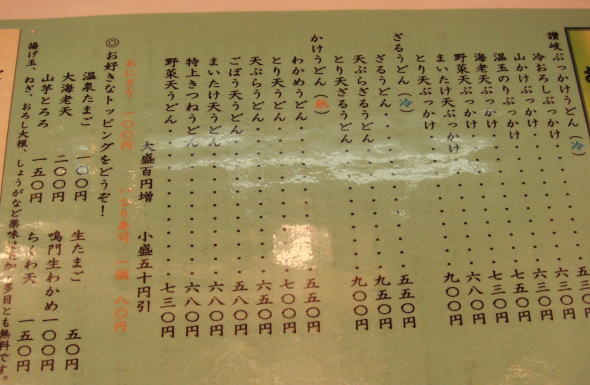 讃岐ぶっかけうどん(冷)
冷おろしぶっかけ・・・・・五三〇円
山かけぶっかけ・・・・・六三〇円
温玉のりぶっかけ・・・・・六三〇円
海老天ぶっかけ・・・・・七五〇円
野菜天ぶっかけ・・・・・七三〇円
まいたけ天ぶっかけ・・・・・六八〇円
とり天ぶっかけ・・・・・九〇〇円
ざるうどん(冷)
ざるうどん・・・・・五五〇円
天ぷらざるうどん・・・・・九五〇円
とり天ざるうどん・・・・・九〇〇円
かけうどん(熱)
わかめうどん・・・・・五五〇円
とり天うどん・・・・・七〇〇円
天ぷらうどん・・・・・六五〇円
ごぼう天うどん・・・・・五八〇円
まいたけ天うどん・・・・・六八〇円
特上きつねうどん・・・・・六八〇円
野菜天うどん・・・・・七三〇円
大盛百円増 小盛五十円引
おにぎり 一〇〇円 いなり寿司 一個 八〇円
◎お好きなトッピングをどうぞ!
温泉たまご 一〇〇円 生たまご 五〇円
大海老天 二〇〇円 鳴門生わかめ 一〇〇円
山芋とろろ 一五〇円 ちくわ天 一五〇円
揚げ玉、ねぎ、おろし大根、しょうがなど薬味 多目とも無料です。